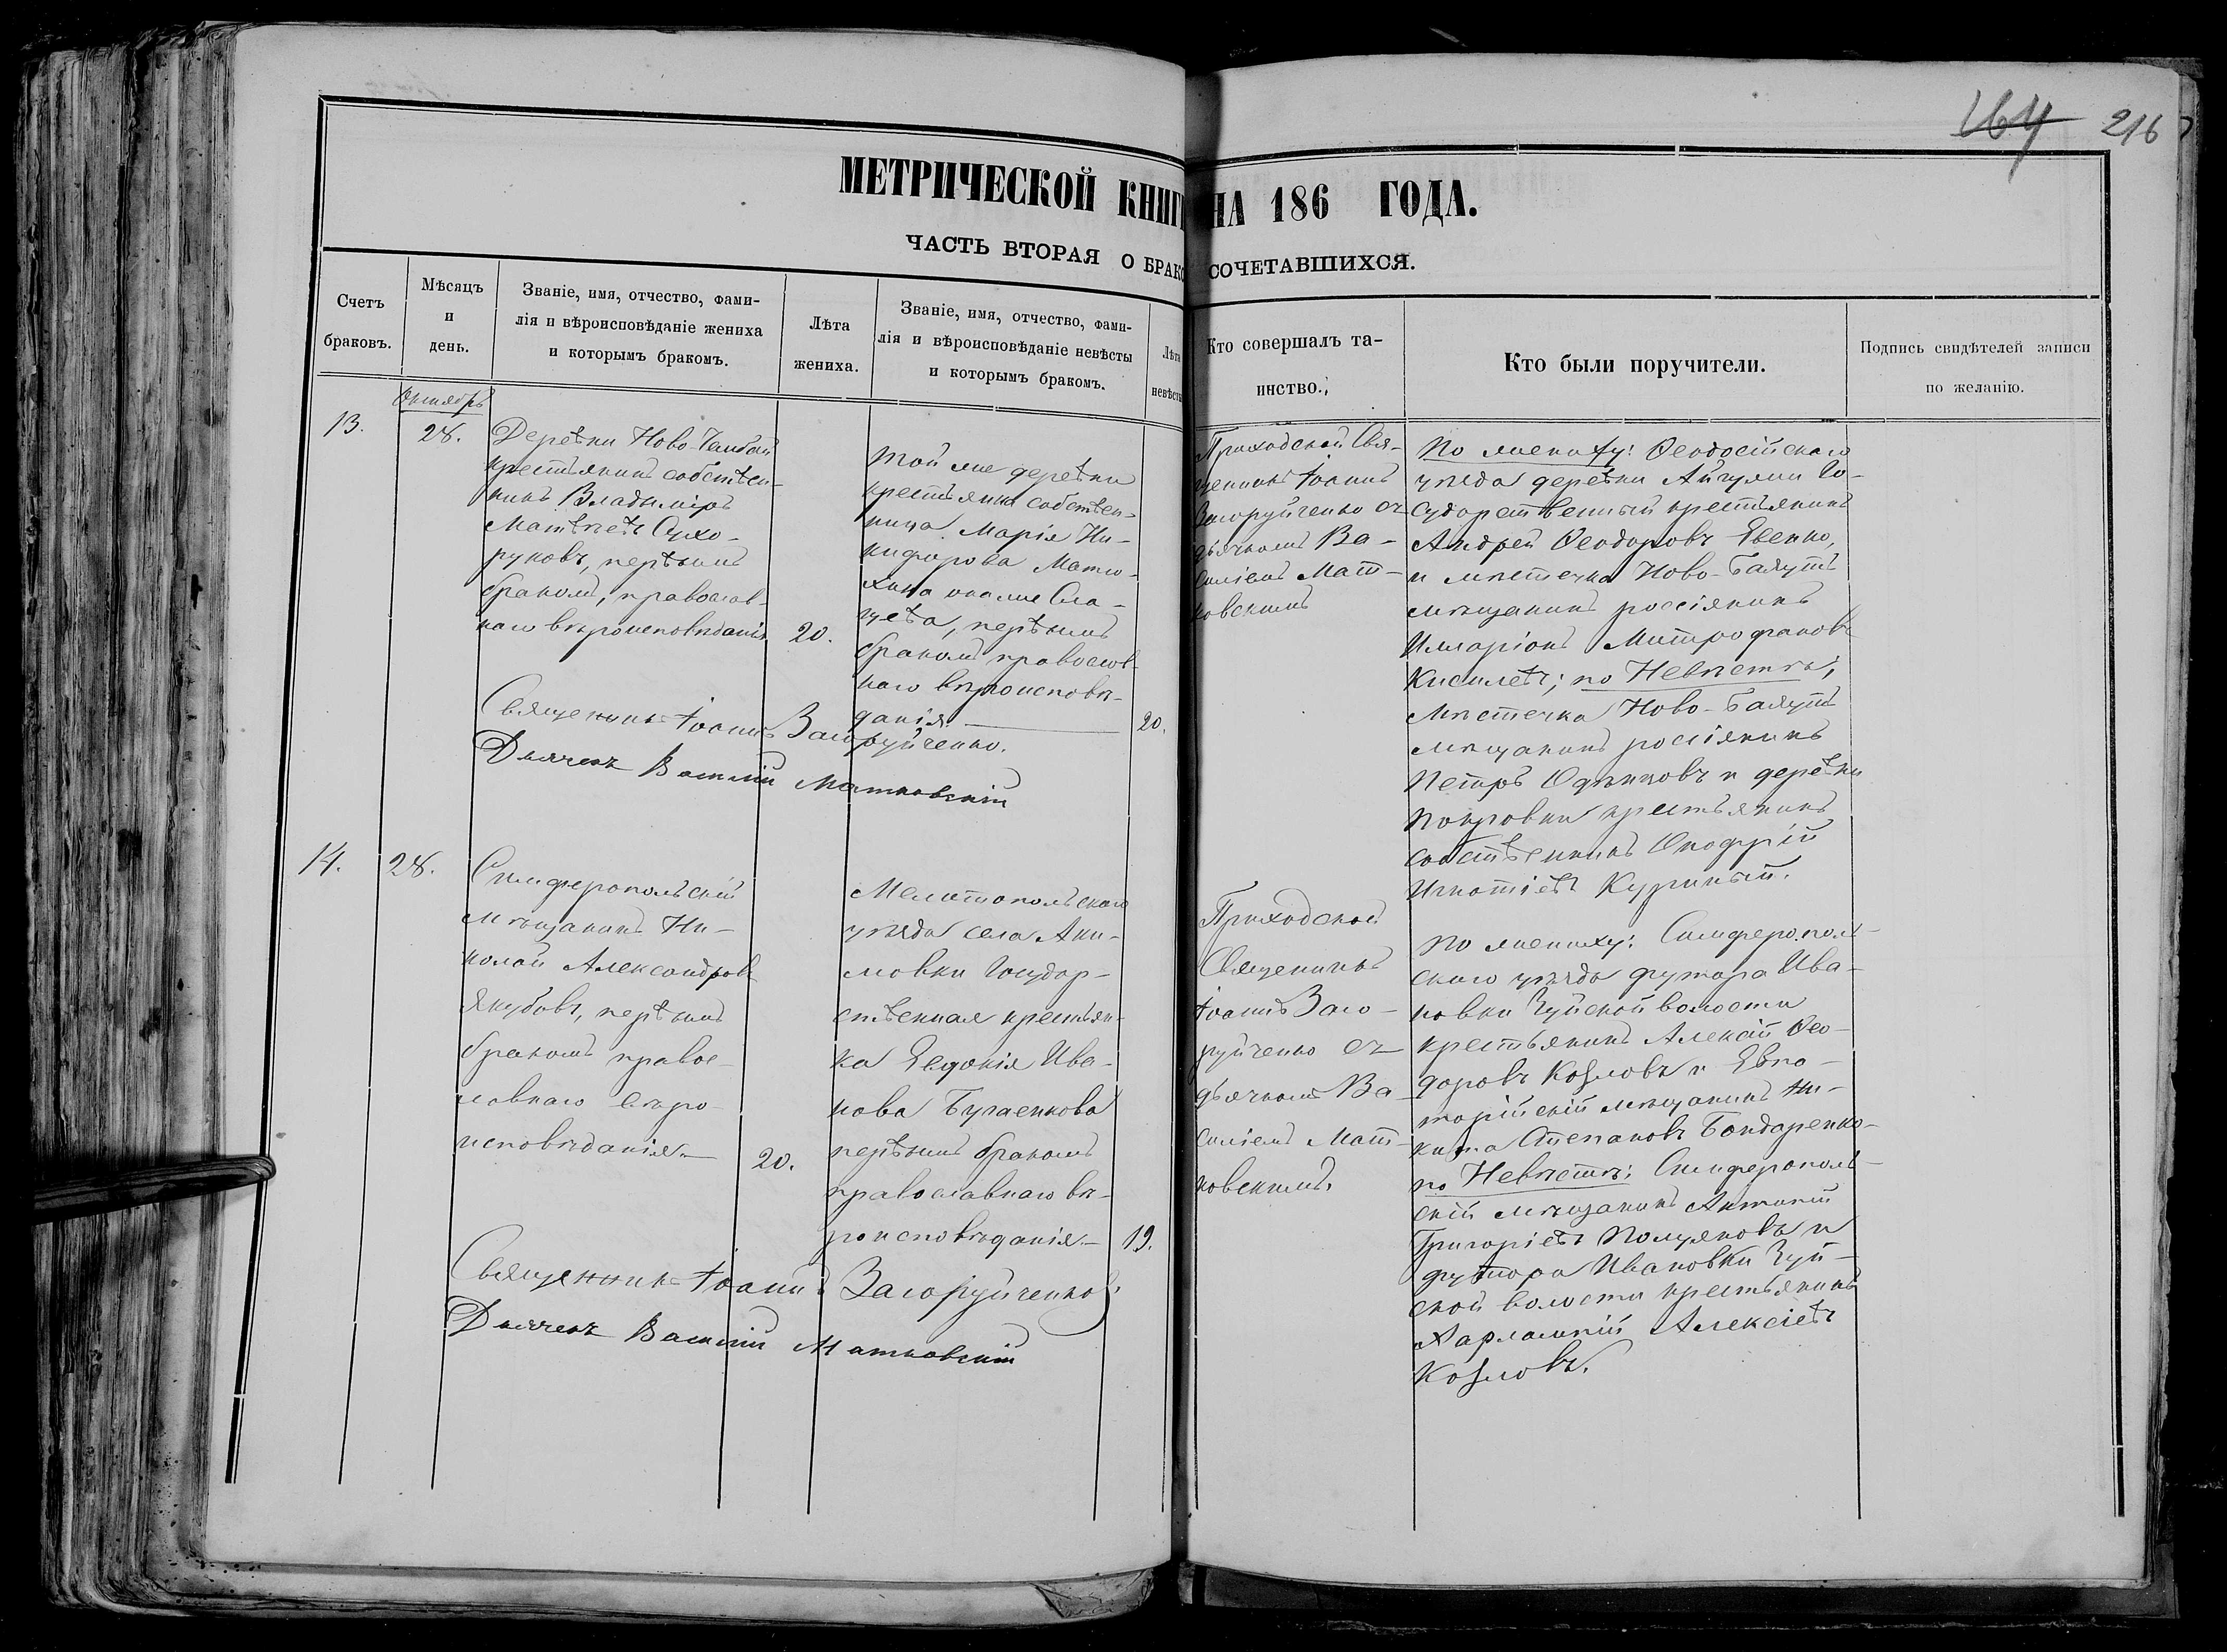 164 216
МЕТРИЧЕСКОЙ КНИГ НА 186 ГОДА.
ЧАСТЬ ВТОРАЯ О БРАКОСОЧЕТАВШИХСЯ.
Счетъ
браковъ.
Мѣсяцъ
и
день.
Званіе, имя, отчество, фами-
лія и вѣроисповѣданіе жениха
и которымъ бракомъ.
Лѣта
жениха.
Званіе, имя, отчество, фами-
лія и вѣроисповѣданіе невѣсты
и которымъ бракомъ.
Лѣта
невѣсты
Кто совершалъ та-
инство.
Кто были поручители.
Подпись свидѣтелей записи
по желанію.
Октябрь
13.
28.
Деревни Ново-
крестьянинъ собствен-
никъ Владыміръ
Матвѣевъ Сухо-
руковъ, первымъ
бракомъ, православ-
наго вѣроисповѣданія
20.
Той же деревни
крестьянка собствен-
ница Марія Ни-
кифорова Матю-
хина она же
первымъ
бракомъ православ-
наго вѣроисповѣ-
данія.
20.
Приходской Свя-
щенникъ Іоаннъ
Загоруйченко съ
дьячкомъ Ва-
силіемъ Мат-
ковскимъ
По жениху: Ѳеодосійскаго
уѣзда деревни Айгулии Го-
сударственный крестьянинъ
Андрей Ѳеодоровъ Евенко,
и мѣстечка Ново-Баяутъ
мѣщанинъ россіянинъ
Илларіонъ Митрофановъ
Киселевъ; по Невѣстѣ;
Мѣстечка Ново-Баяутъ
мѣщанинъ россіянинъ
Петръ Одѣинцовъ и деревни
Покровки крестьянинъ
собственникъ Онофрій
Игнатіевъ Куриный.
Священникъ Іоаннъ Загоруйченко.
Дьячекъ Василій Матковскій
14.
28.
Симферопольскій
мѣщанинъ Ни-
колай Александровъ
Якубовъ, первымъ
бракомъ правос-
лавнаго вѣро-
исповѣданія.
20.
Мелитопольскаго
уѣзда села Аки-
мовки Государ-
ственная крестьян-
ка Евдокія Ива-
нова Бугаенкова
первымъ бракомъ
православнаго вѣ-
роисповѣданія.
19.
Приходской
Священникъ
Іоаннъ Заго-
руйченко съ
дьячкомъ Ва-
силіемъ Мат-
ковскимъ.
По жениху: Симферополь-
скаго уѣзда хутора Ива-
новки Зуйской волости
крестьянинъ Алексѣй Ѳео-
доровъ Козловъ и Евпа-
торійскій мѣщанинъ Ни-
кита Степановъ Бондаренко
по Невѣстѣ: Симферополь-
скій мѣщанинъ Антоній
Григоріевъ Полуяновъ и
хутора Ивановки Зуй-
ской волости крестьянинъ
Харлампій Алексіевъ
Козловъ.
Священникъ Іоаннъ Загоруйченко.
Дьячекъ Василій Матковскій